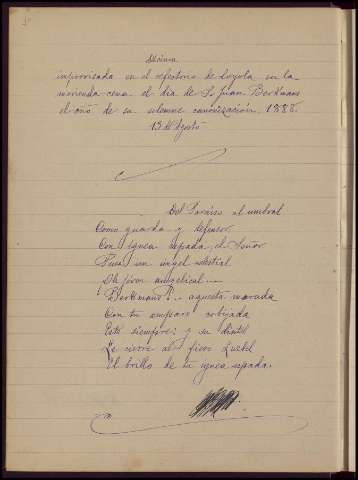 Décima
improvisada en el refectorio de Loyola en la
merienda cena el dia de S. Juan Berkmans
el año de su solemne canonización, 1888.
13 de Agosto
Del Paraiso al umbral
Como guarda y defensor
Con ignea espada, el Señor
Puso un angel celestial
Oh joven angelical
Berkmans!.. aquesta morada
Con tu amparo cobijada
Esté siempre; y su dintel
Le cierre al fiero Luzbel
El brillo de tu ignea espada.